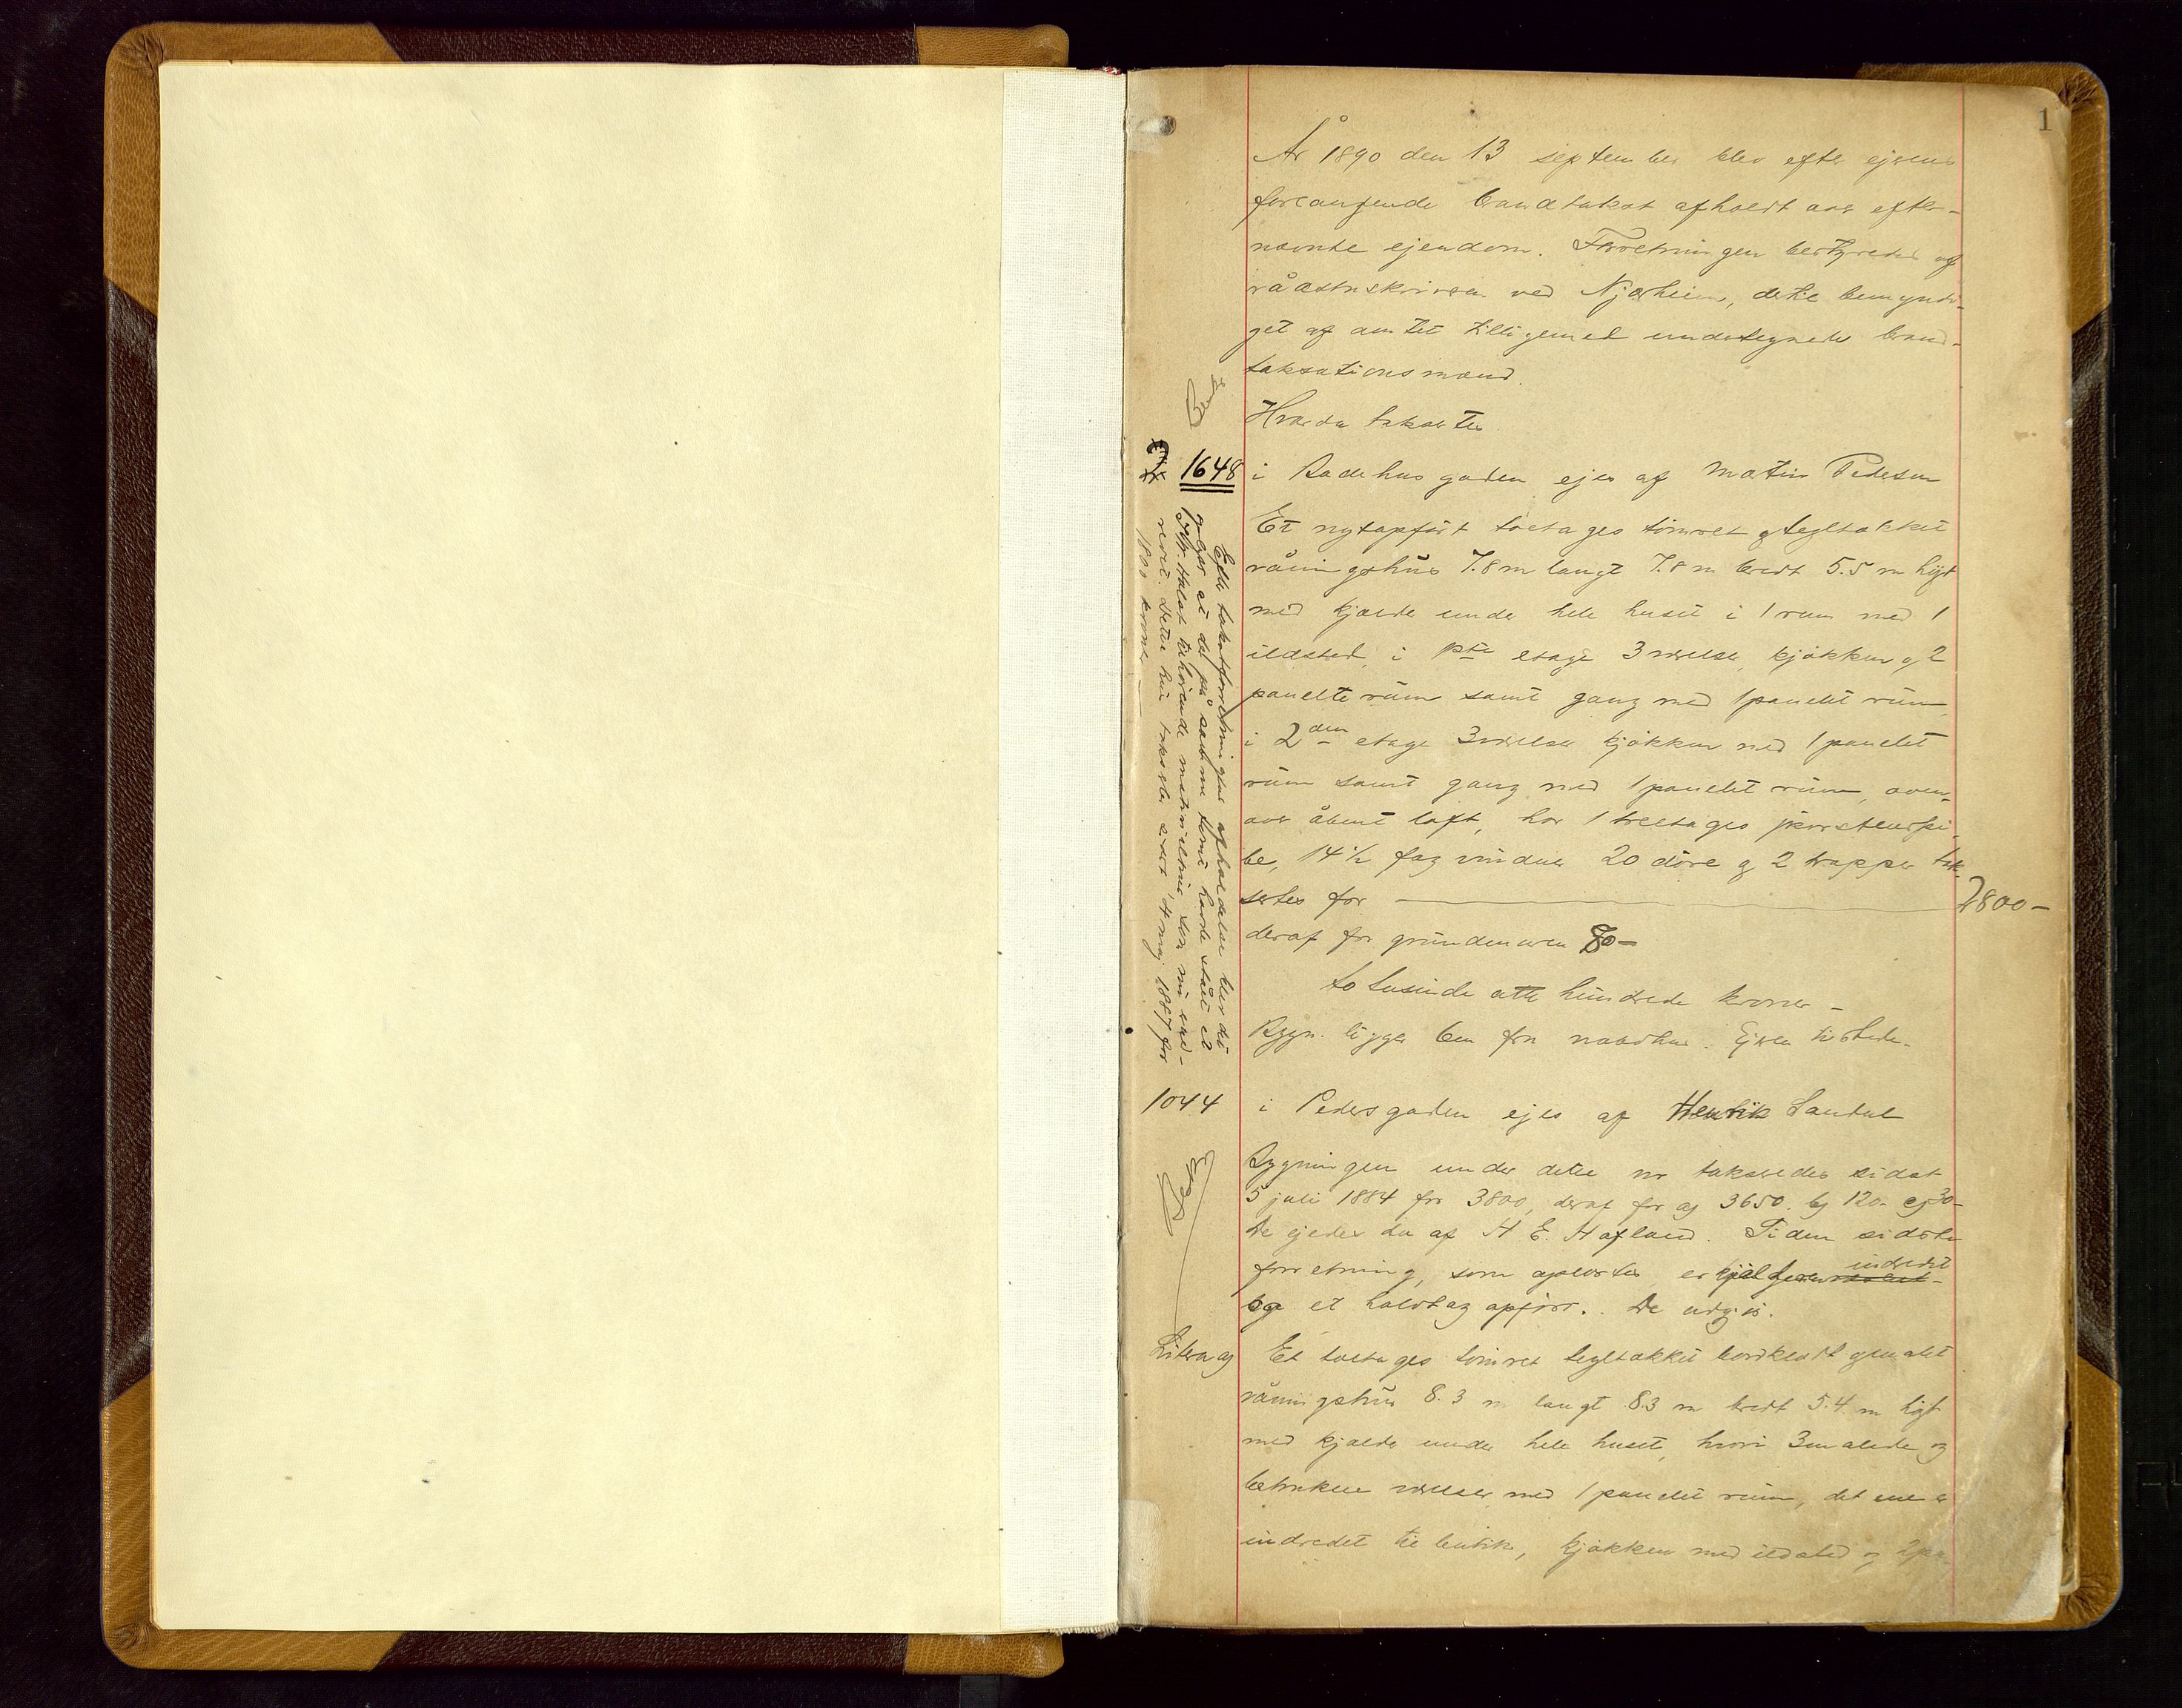 1
År 1890 den 13 september blev efter ejerens
forlangende brandtakst afholdt over efter-
nævnte ejendom. Forretningen bestyredes af
rådstuskriver ved Njærheim, dertil bemyndi-
get af amtet tilligemed undertegnede brand-
taksationsmænd.
Hvorda taksertes
1648 i Badehusgaden ejes af Martin Pedersen
Et nyt opført toetages tømret og tegltækket
våningshus 7.8 m langt 7.8 m bredt 5.5 m høit
med kjælder under hele huset i 1 rum med 1
ildsted, i 1ste etage 3 værelser, kjøkken og 2
panelte rum samt gang med 1 panelet rum
i 2den etage 3 værelser kjøkken med 1 panelet
rum samt gang med 1 panelet rum, oven-
over åbent loft, har 1 treetages skorstenspi-
be, 14 1/2 fag vinduer 20 døre og 2 trapper tak-
sertes for 2800-
deraf for grundmuren 80-
to tusinde otte hundrede kroner -
Bygn. ligger 6m fra nabohus. Ejeren tilstede.
Efter takstforretningens afholdelse blev det
oplyst at der på samme tomt havde stået et
tilhørende matrikelhus, som nu
revet. Dette hus takserter 4 maj 1887 for
1800 kroner
1044 i Pedersgaden ejes af Henrik Sandal
Bygningen under dette nr takseredes sidst
5 juli 1884 for 3800, deraf for a) 3650. b) 120- c) 30-
De ejedes da af H E. Hafland. Siden sidste
forretning, som oplæstes er kjælderen indredet
og et halvtag opført. De udgjør.
Litera a) Et toetages tømret tegltækket bordklædt og malet
våningshus 8.3 m langt 8.3 m bredt 5.4 m høit
med kjælder under hele huset, hvori 3 malede og
betrukne værelser med 1 panelet rum, det ene er
indredet til butik, kjøkken med ildsted og 2 pa-